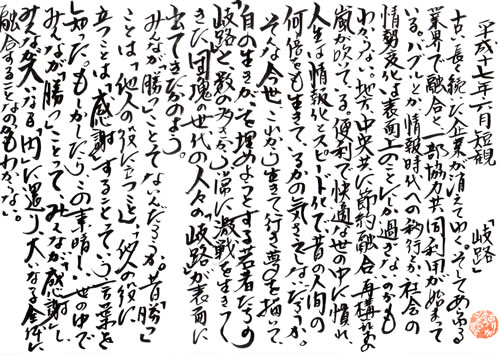 平成十七年六月短観
「岐路」
古い長く続いた企業が消えてゆく。そしてあらゆる
業界で融合と一部協力共同利用が始まって
いる。バブルとか情報時代への移行とか社会の
情勢変化は表面上のことにしか過ぎないのかも
わからない。地方、中央共に節約、融合、再構築の
嵐が吹いている。便利で快適な世の中に慣れ、
人生は情報化とスピード化で、昔の人間の
何倍をも生きているかの気さえしないだろうか。
そんな今世、これから生きて行き夢を描いて、
自の生きがいを埋めようとする若者たちの
「岐路」と数の多さから常に激戦を生きて
きた団塊の世代の人々の「岐路」が表面に
出てきたかのよう。
みんなが「勝つ」ことってないんだろうか。昔「勝つ」
ことは「他人の役に立つこと」、「他人の役に
立つことは「感謝」することという言葉を
知った。もしかしたらこの素晴しい世の中で
みんなが「勝つ」ことって、みんなが「感謝」し、
みんなが大いなる「円」に還り、大いなる全体に
融合することなのかもわからない。